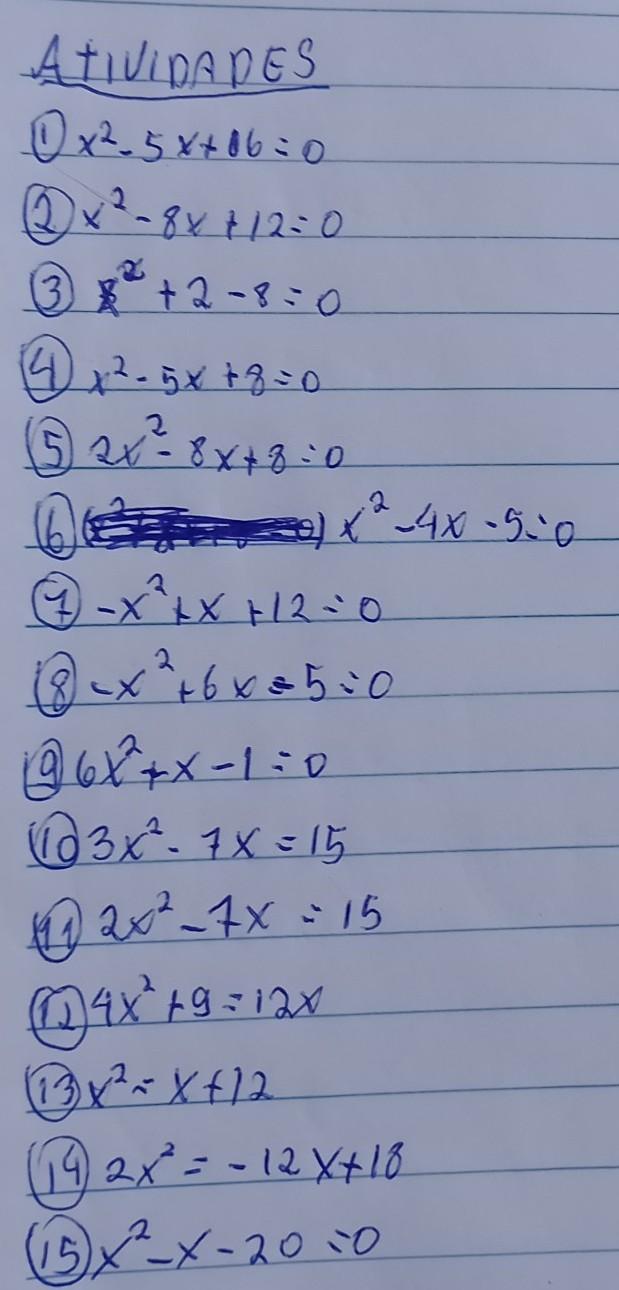 ATIVIDADES
① x² - 5x + 06 = 0
② x² - 8x + 12 = 0
③ x² + 2 - 8 = 0
④ x² - 5x + 8 = 0
⑤ 2x² - 8x + 8 = 0
⑥ x² - 4x - 5 = 0
⑦ -x² + x + 12 = 0
⑧ -x² + 6x - 5 = 0
⑨ 6x² + x - 1 = 0
⑩ 3x² - 7x = 15
⑪ 2x² - 7x = 15
⑫ 4x² + 9 = 12x
⑬ x² = x + 12
⑭ 2x² = -12x + 18
⑮ x² - x - 20 = 0